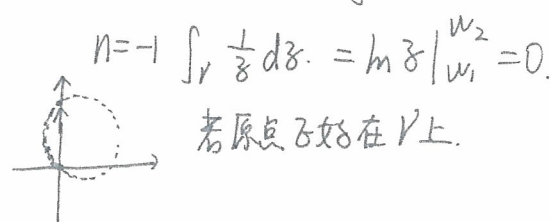 n=-1 ∫_γ 1/z dz. = ln z |_{w_1}^{w_2} = 0.
若原点正好在γ上.